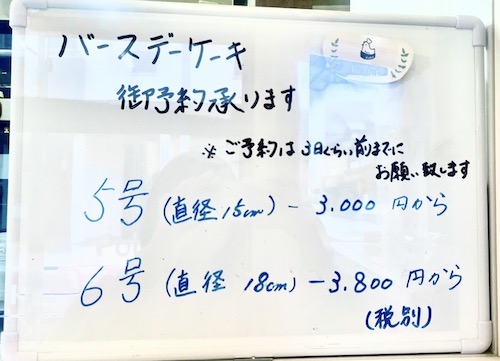 バースデーケーキ
御予約承ります
※ ご予約は 3日くらい前までに
お願い致します
5号 (直径 15cm) - 3.000 円から
6号 (直径 18cm) - 3.800 円から
(税別)